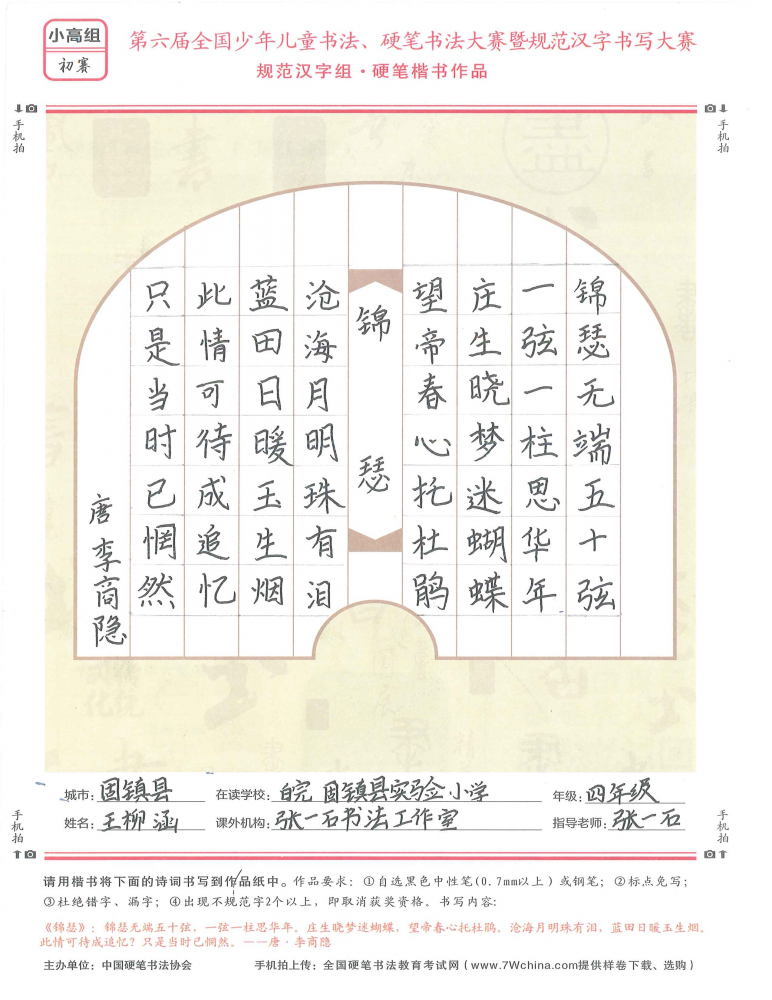 小高组
初赛
第六届全国少年儿童书法、硬笔书法大赛暨规范汉字书写大赛
规范汉字组·硬笔楷书作品
手机拍
手机拍
锦瑟无端五十弦
一弦一柱思华年
庄生晓梦迷蝴蝶
望帝春心托杜鹃
锦瑟
沧海月明珠有泪
蓝田日暖玉生烟
此情可待成追忆
只是当时已惘然
唐李商隐
城市：固镇县 在读学校：皖 固镇县实验小学 年级：四年级
姓名：王柳涵 课外机构：张一石书法工作室 指导老师：张一石
手机拍
手机拍
请用楷书将下面的诗词书写到作品纸中。作品要求：①自选黑色中性笔(0.7mm以上）或钢笔；②标点免写；
③杜绝错字、漏字；④出现不规范字2个以上，即取消获奖资格。书写内容：
《锦瑟》：锦瑟无端五十弦，一弦一柱思华年。庄生晓梦迷蝴蝶，望帝春心托杜鹃。沧海月明珠有泪，蓝田日暖玉生烟。
此情可待成追忆？只是当时已惘然。——唐·李商隐
主办单位：中国硬笔书法协会 手机拍上传：全国硬笔书法教育考试网（www.7Wchina.com提供样卷下载、选购）